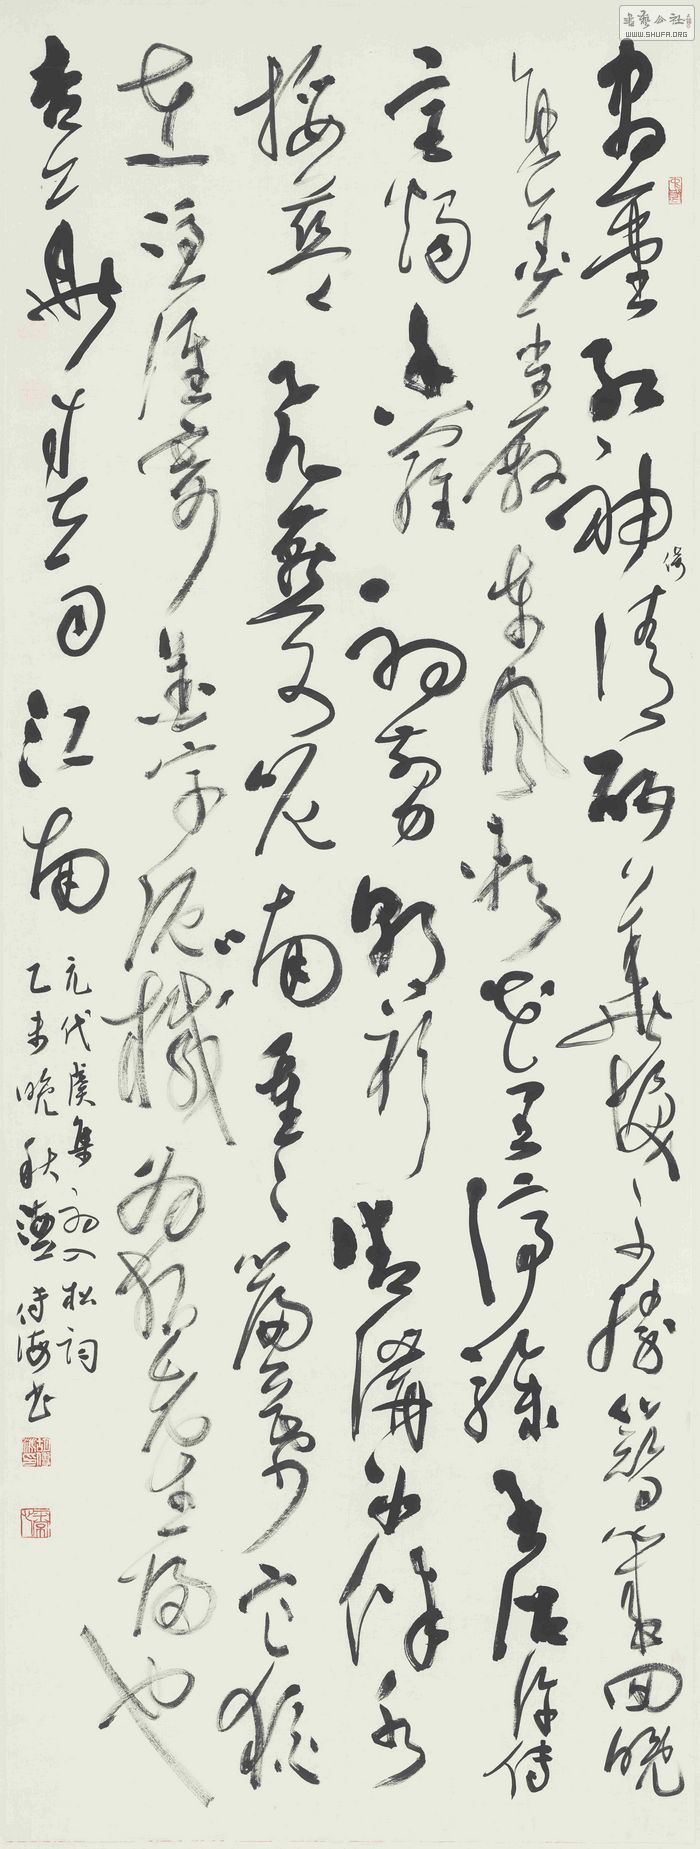 畫堂紅袖倚清酣華髮不勝簪幾回晚
直金鑾殿東風軟花裏停驂書詔許傳
宮燭香羅初剪朝衫御溝冰泮水
挼藍飛燕又呢喃重重簾幕寒猶
在憑誰寄銀字泥緘為報先生歸也
杏花春雨江南
元代虞集風入松詞
乙未晚秋 海書
書藝公社
WWW.SHUFA.ORG